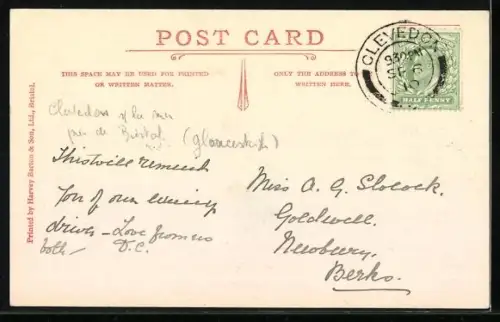 POST CARD
THIS SPACE MAY BE USED FOR PRINTED
OR WRITTEN MATTER.
ONLY THE ADDRESS TO
WRITTEN HERE.
CLEVEDON
930PM
SP 6
10
HALFPENNY
Printed by Harvey Barton & Son, Ltd., Bristol.
Clevedon s/ la mer
près de Bristol
(Gloucestersh)
This will remind
you of our evening
drives – Love from us
both – D.C.
Miss A. G. Slocock.
Goldwell.
Newbury.
Berks.